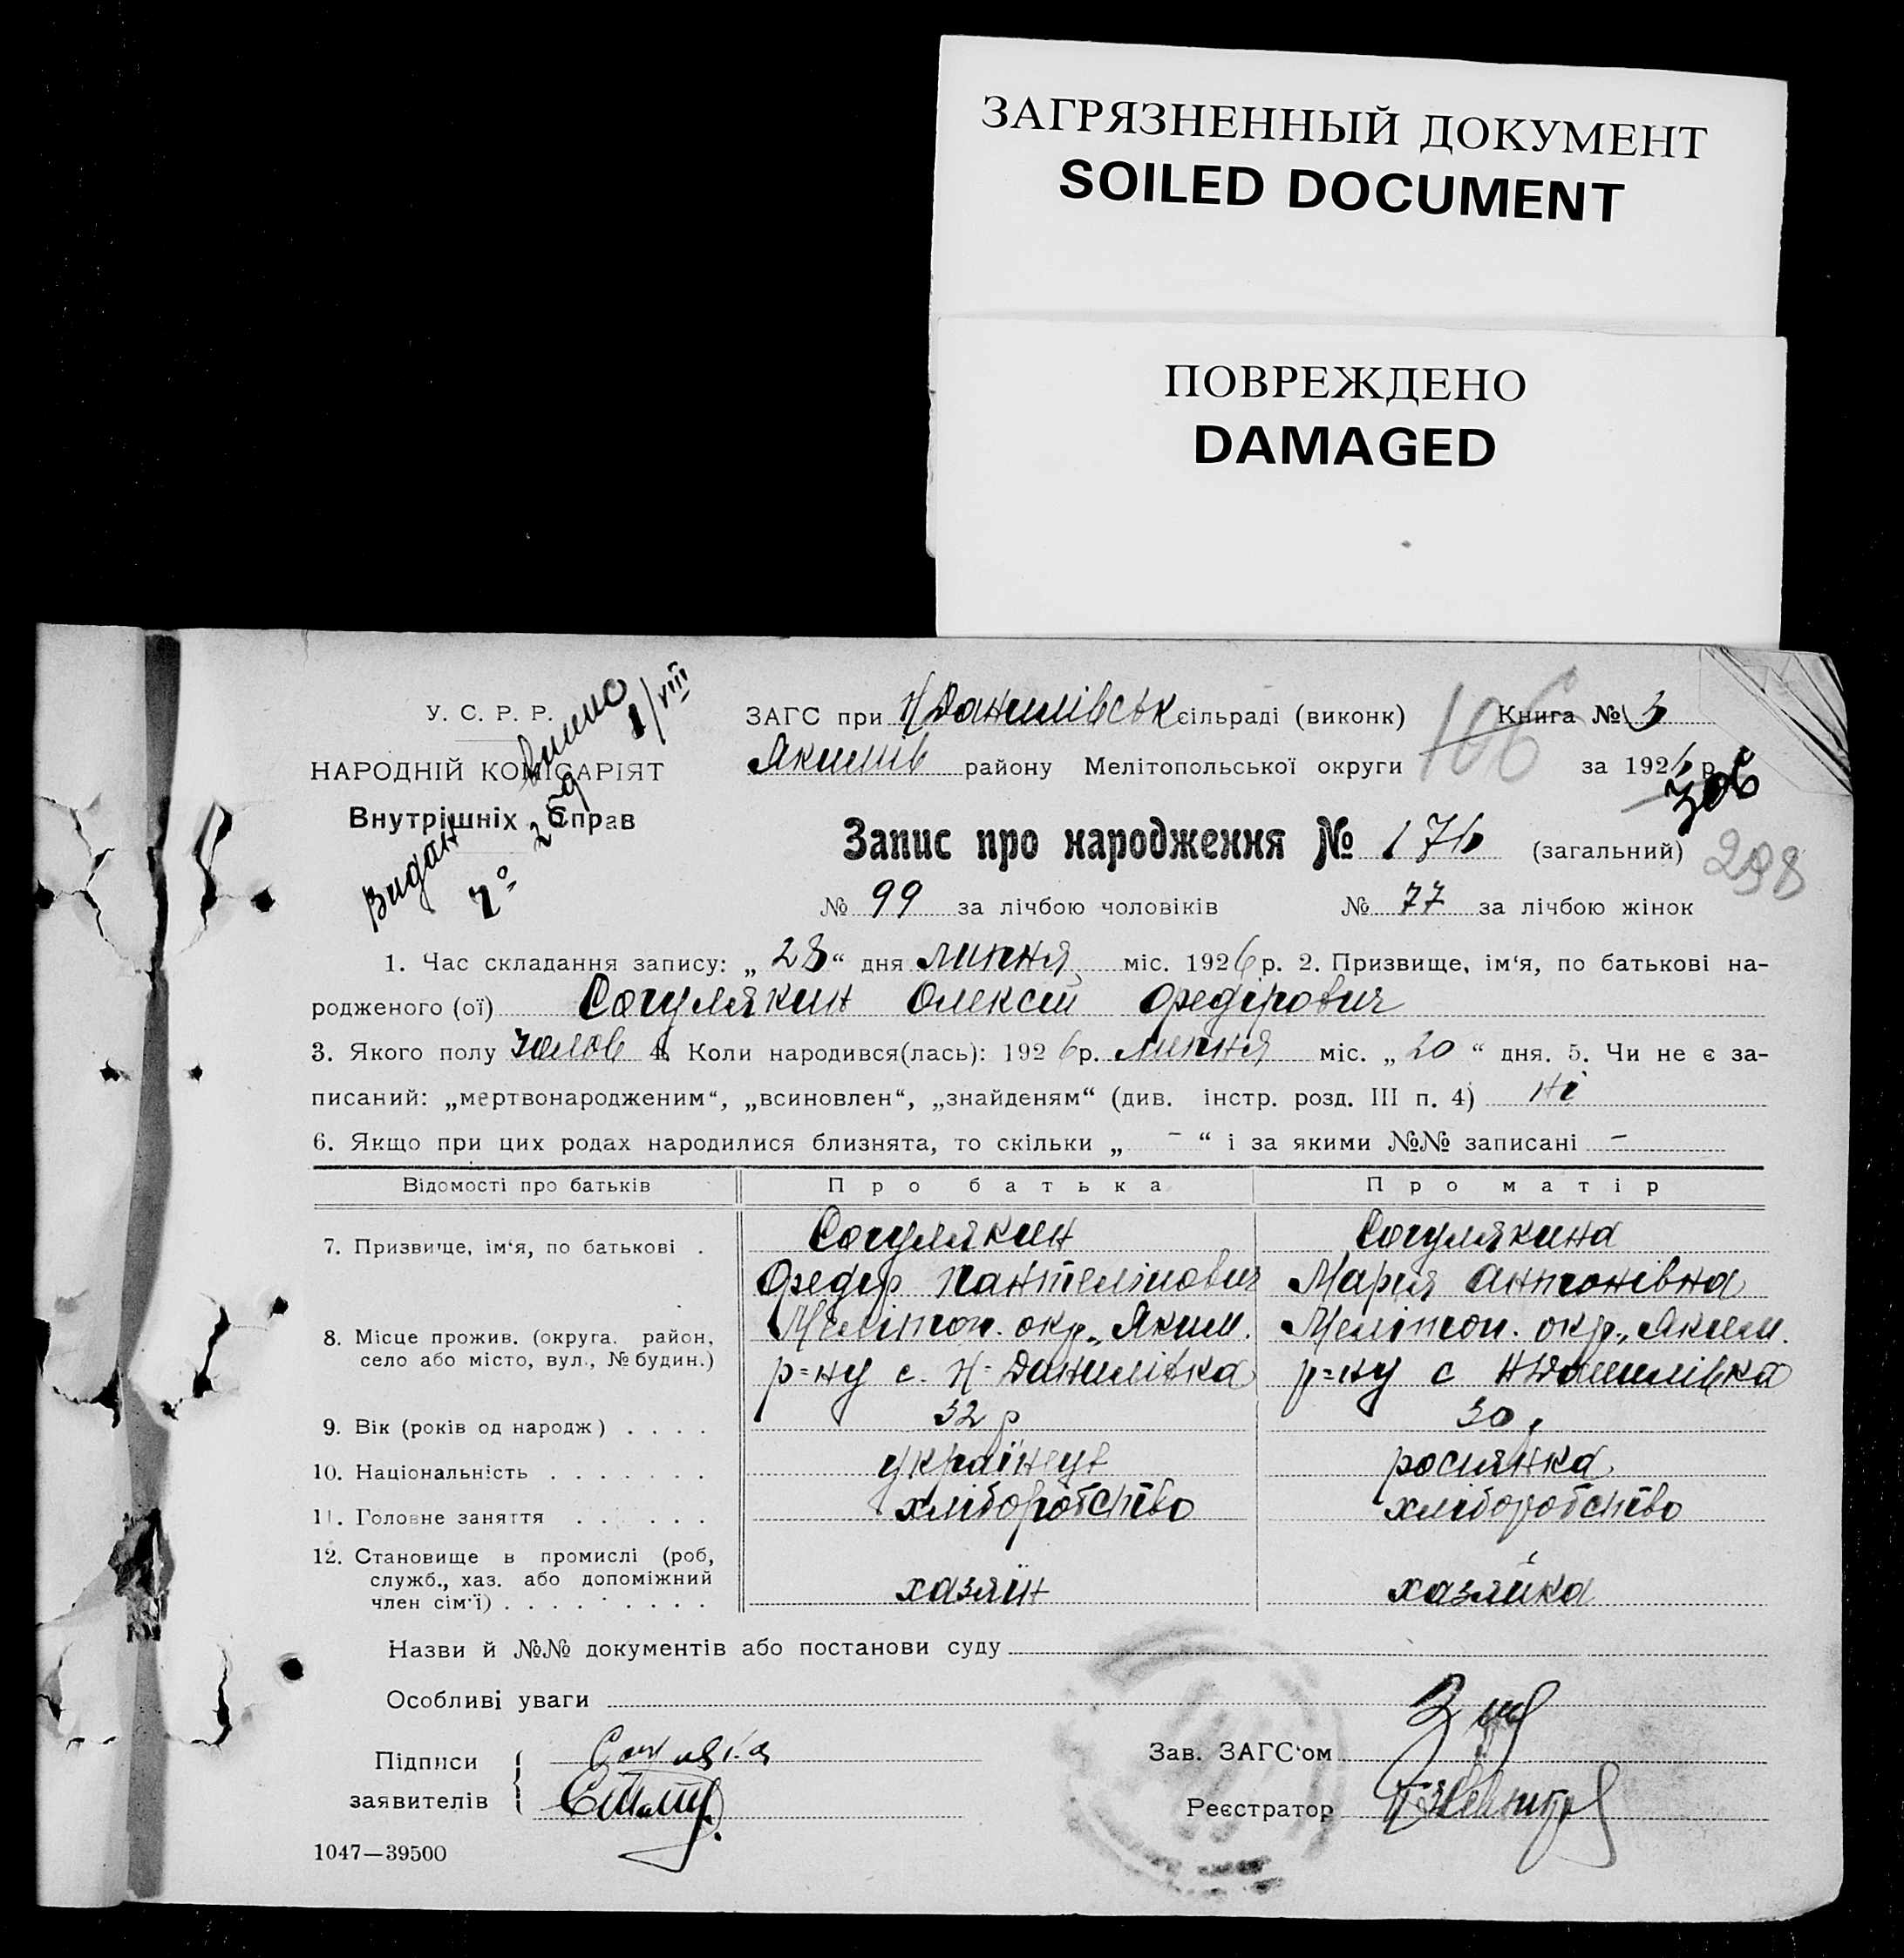 ЗАГРЯЗНЕННЫЙ ДОКУМЕНТ
SOILED DOCUMENT
ПОВРЕЖДЕНО
DAMAGED
У. С. Р. Р.
НАРОДНІЙ КОМІСАРІЯТ
Внутрішніх Справ
1/VIII
ЗАГС при Н Данилівськ сільраді (виконк) Книга № 3
Якимів району Мелітопольської округи 106 за 1926 р.
306
Запис про народження № 176 (загальний)
298
№ 99 за лічбою чоловіків № 77 за лічбою жінок
1. Час складання запису: „ 28 “ дня липня міс. 1926 р. 2. Призвище, ім‘я, по батькові на-
родженого (ої) Согулякин Олексій Федірович
3. Якого полу чолов 4. Коли народився(лась): 1926 р. липня міс. „ 20 “ дня. 5. Чи не є за-
писаний: „мертвонародженим“, „всиновлен“, „знайденям“ (див. інстр. розд. III п. 4) ні
6. Якщо при цих родах народилися близнята, то скільки „ – “ і за якими №№ записані –
Відомості про батьків Про батька Про матір
7. Призвище, ім‘я, по батькові . Согулякин Согулякина
Федір Пантелімович Мария Антонівна
8. Місце прожив. (округа. район, Меліпот. окр., Яким. Меліпот. окр., Яким.
село або місто, вул., № будин.) р=ну с. Н-Данилівка р=ну с Н Данилівка
9. Вік (років од народж) . . . . 32 р 30 р
10. Національність . . . . . . . українець росиянка
11. Головне заняття . . . . . . хліборобство хліборобство
12. Становище в промислі (роб,
служб., хаз. або допоміжний хазяїн хазяйка
член сім‘ї) . . . . . . . . .
Назви й №№ документів або постанови суду
Особливі уваги
Підписи
заявителів
Зав. ЗАГС‘ом
Реєстратор
1047—39500